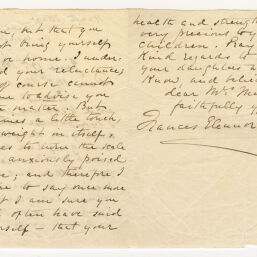 but that you
not bring yourself
or home. I under-
your reluctance
of course cannot
to advise you
matter. But
a little touch,
weight on itself,
to turn the scale
anxiously poised
; and therefore I
to say once more
I am sure you
often have said
self – that your
health and strength
very precious to
children. Pray
kind regards to
your daughters
know and believe
dear Mrs
faithfully
Frances Eleanor